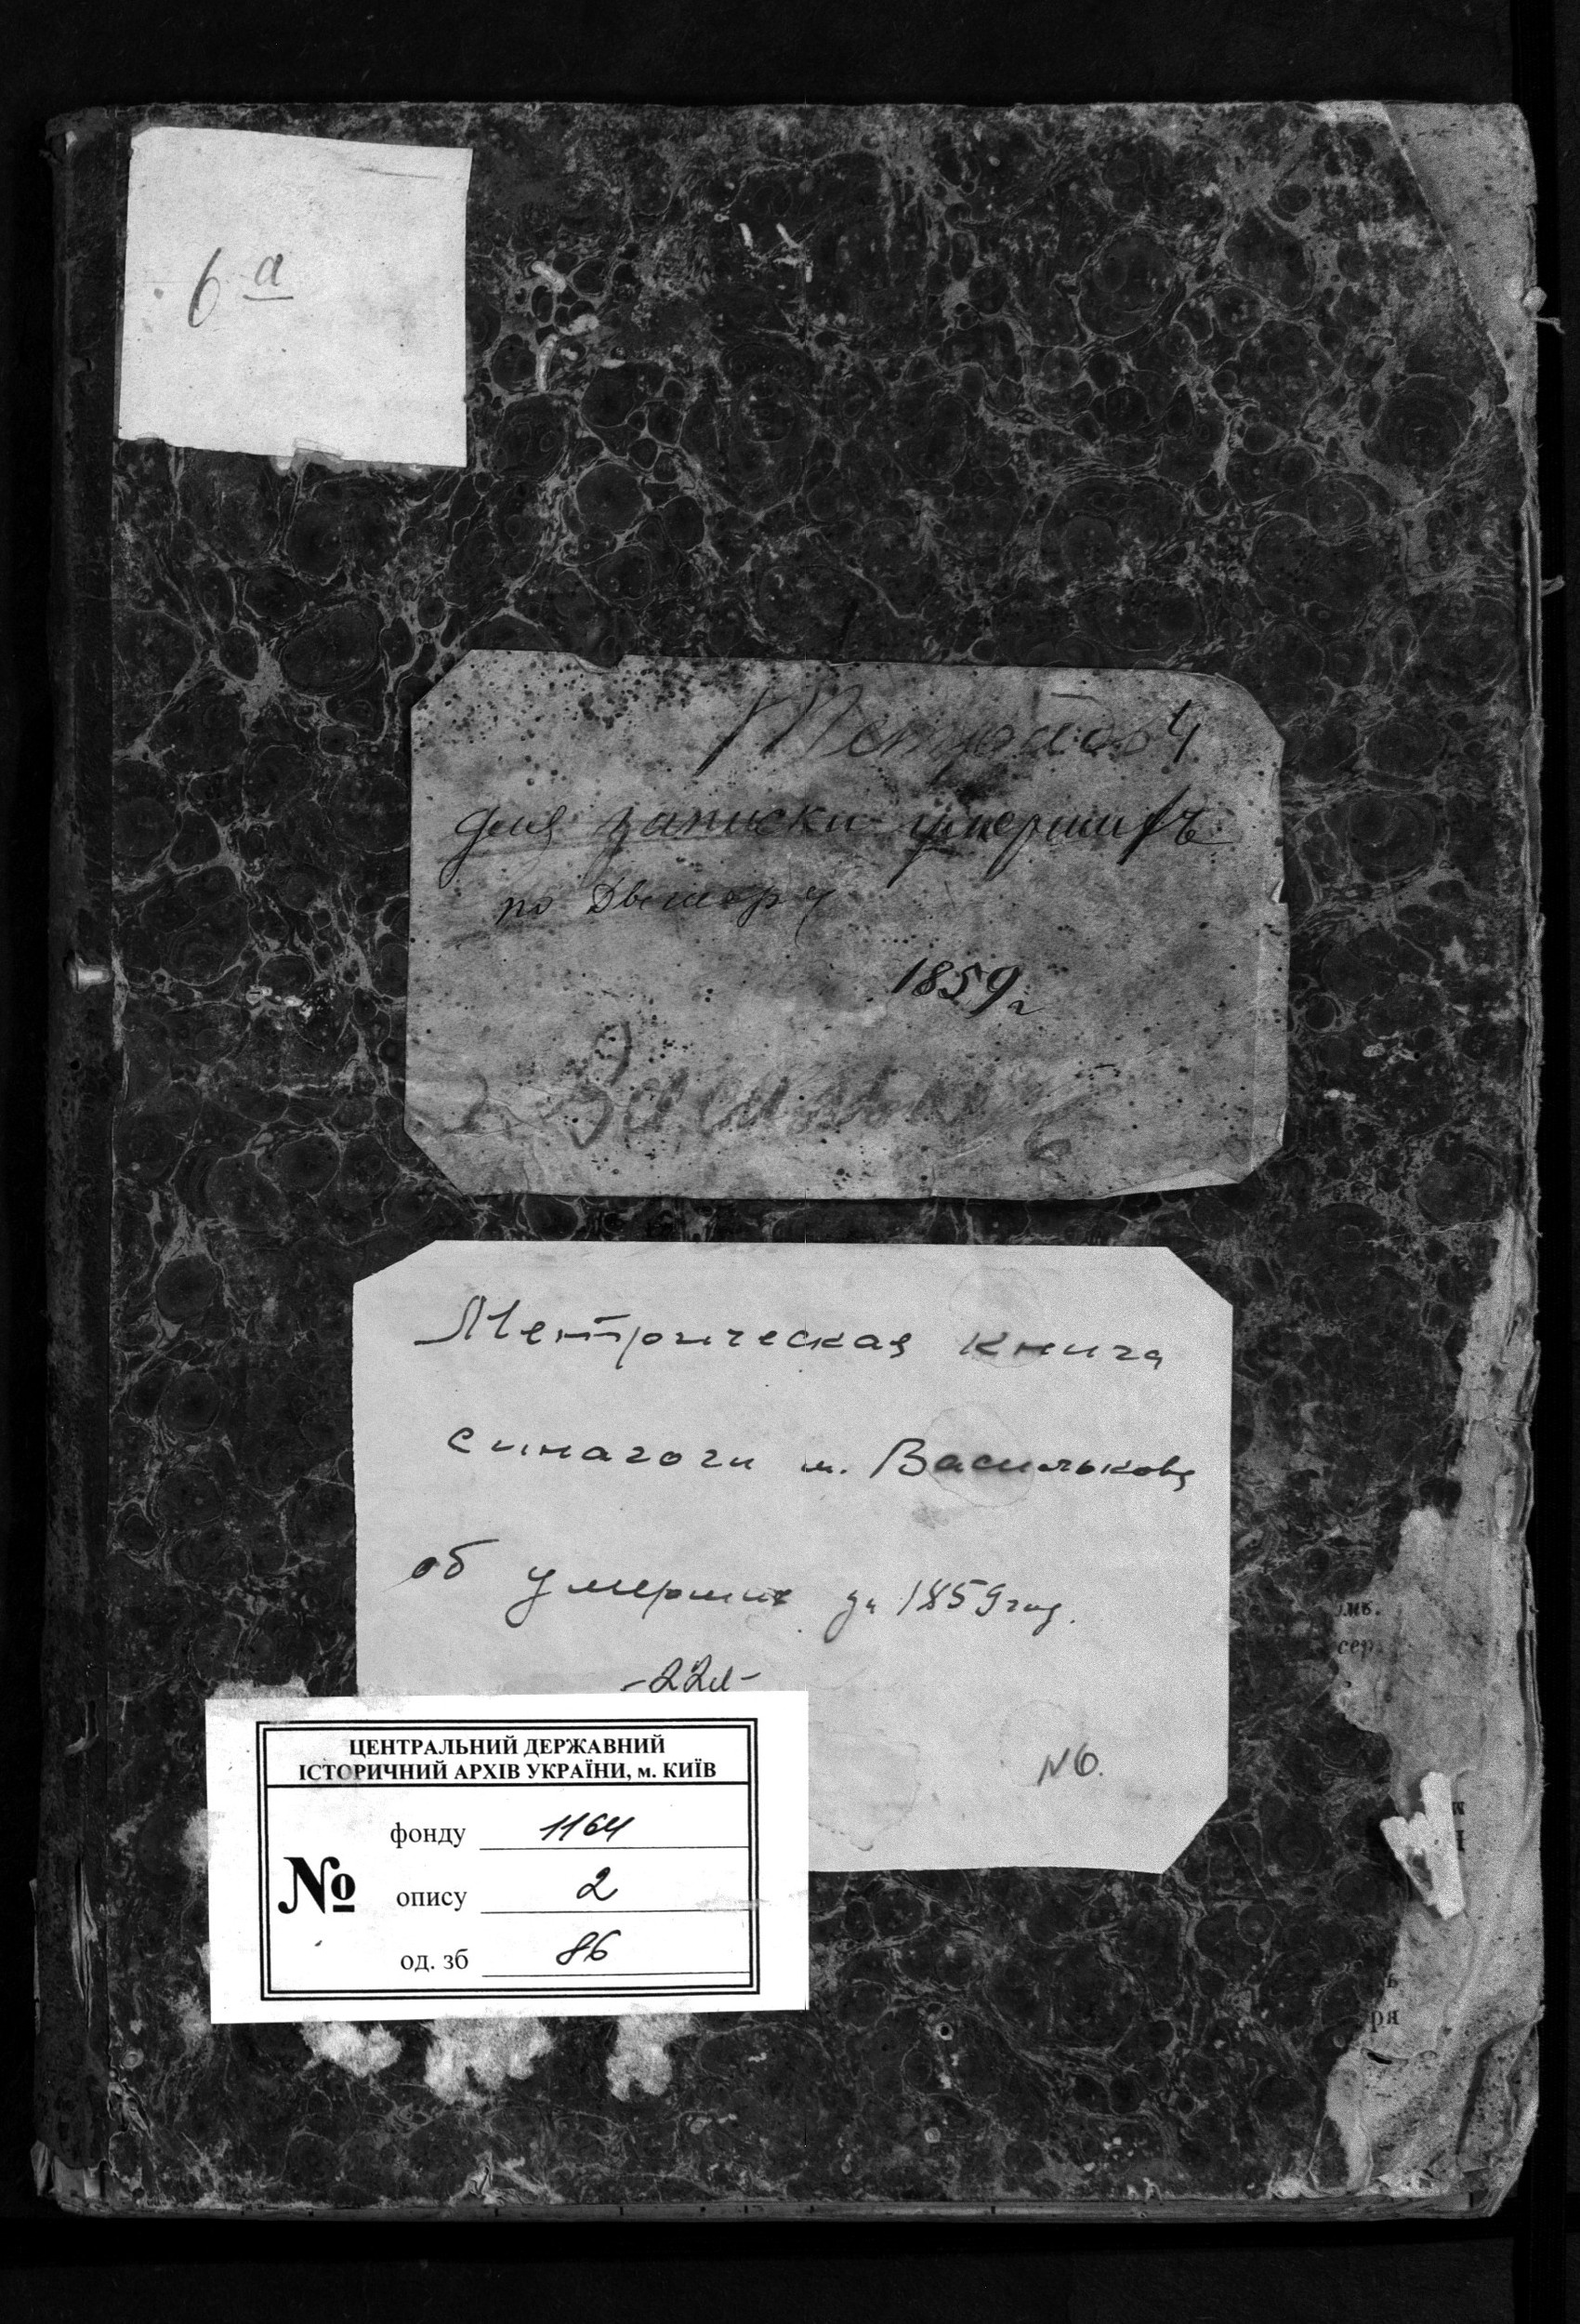 6 а
для записки умершихъ
по
1859 г
г. Васильков
6
Метрическая книга
синагоги м. Василькова
об умерших за 1859 год.
-22л-
N6.
ЦЕНТРАЛЬНИЙ ДЕРЖАВНИЙ
ІСТОРИЧНИЙ АРХІВ УКРАЇНИ, м. КИЇВ
фонду 1164
№ опису 2
од. зб 86
сер.
ря